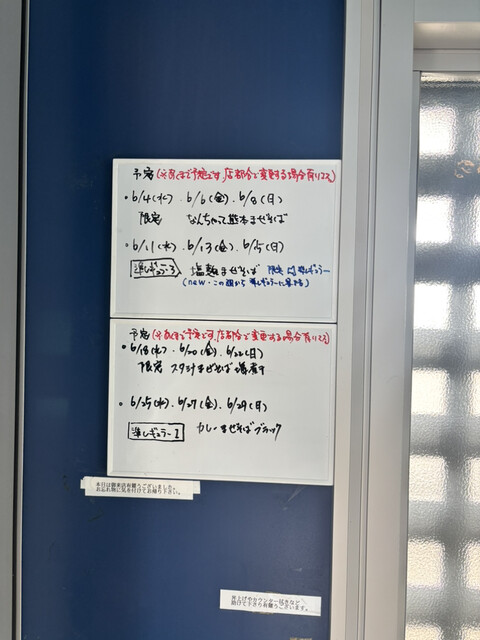 予定(※あくまで予定です。店都合で変更する場合有ります)
・6/4(水)・6/6(金)・6/8(日)
限定 なんちゃって熊本まぜそば
・6/11(水)・6/13(金)・6/15(日)
準レギュラー3 塩麹まぜそば 限定 準レギュラー
(new・この週から準レギュラーになる)
予定(※あくまで予定です。店都合で変更する場合有ります)
・6/18(水)・6/20(金)・6/22(日)
限定 スタミナまぜそば
・6/25(水)・6/27(金)・6/29(日)
準レギュラー1 カレーまぜそばブラック
本日は御来店有難うございました。
お忘れ物に気を付けてお帰り下さい。
丼上げやカウンター拭きなど
助けて下さり有難うございます。